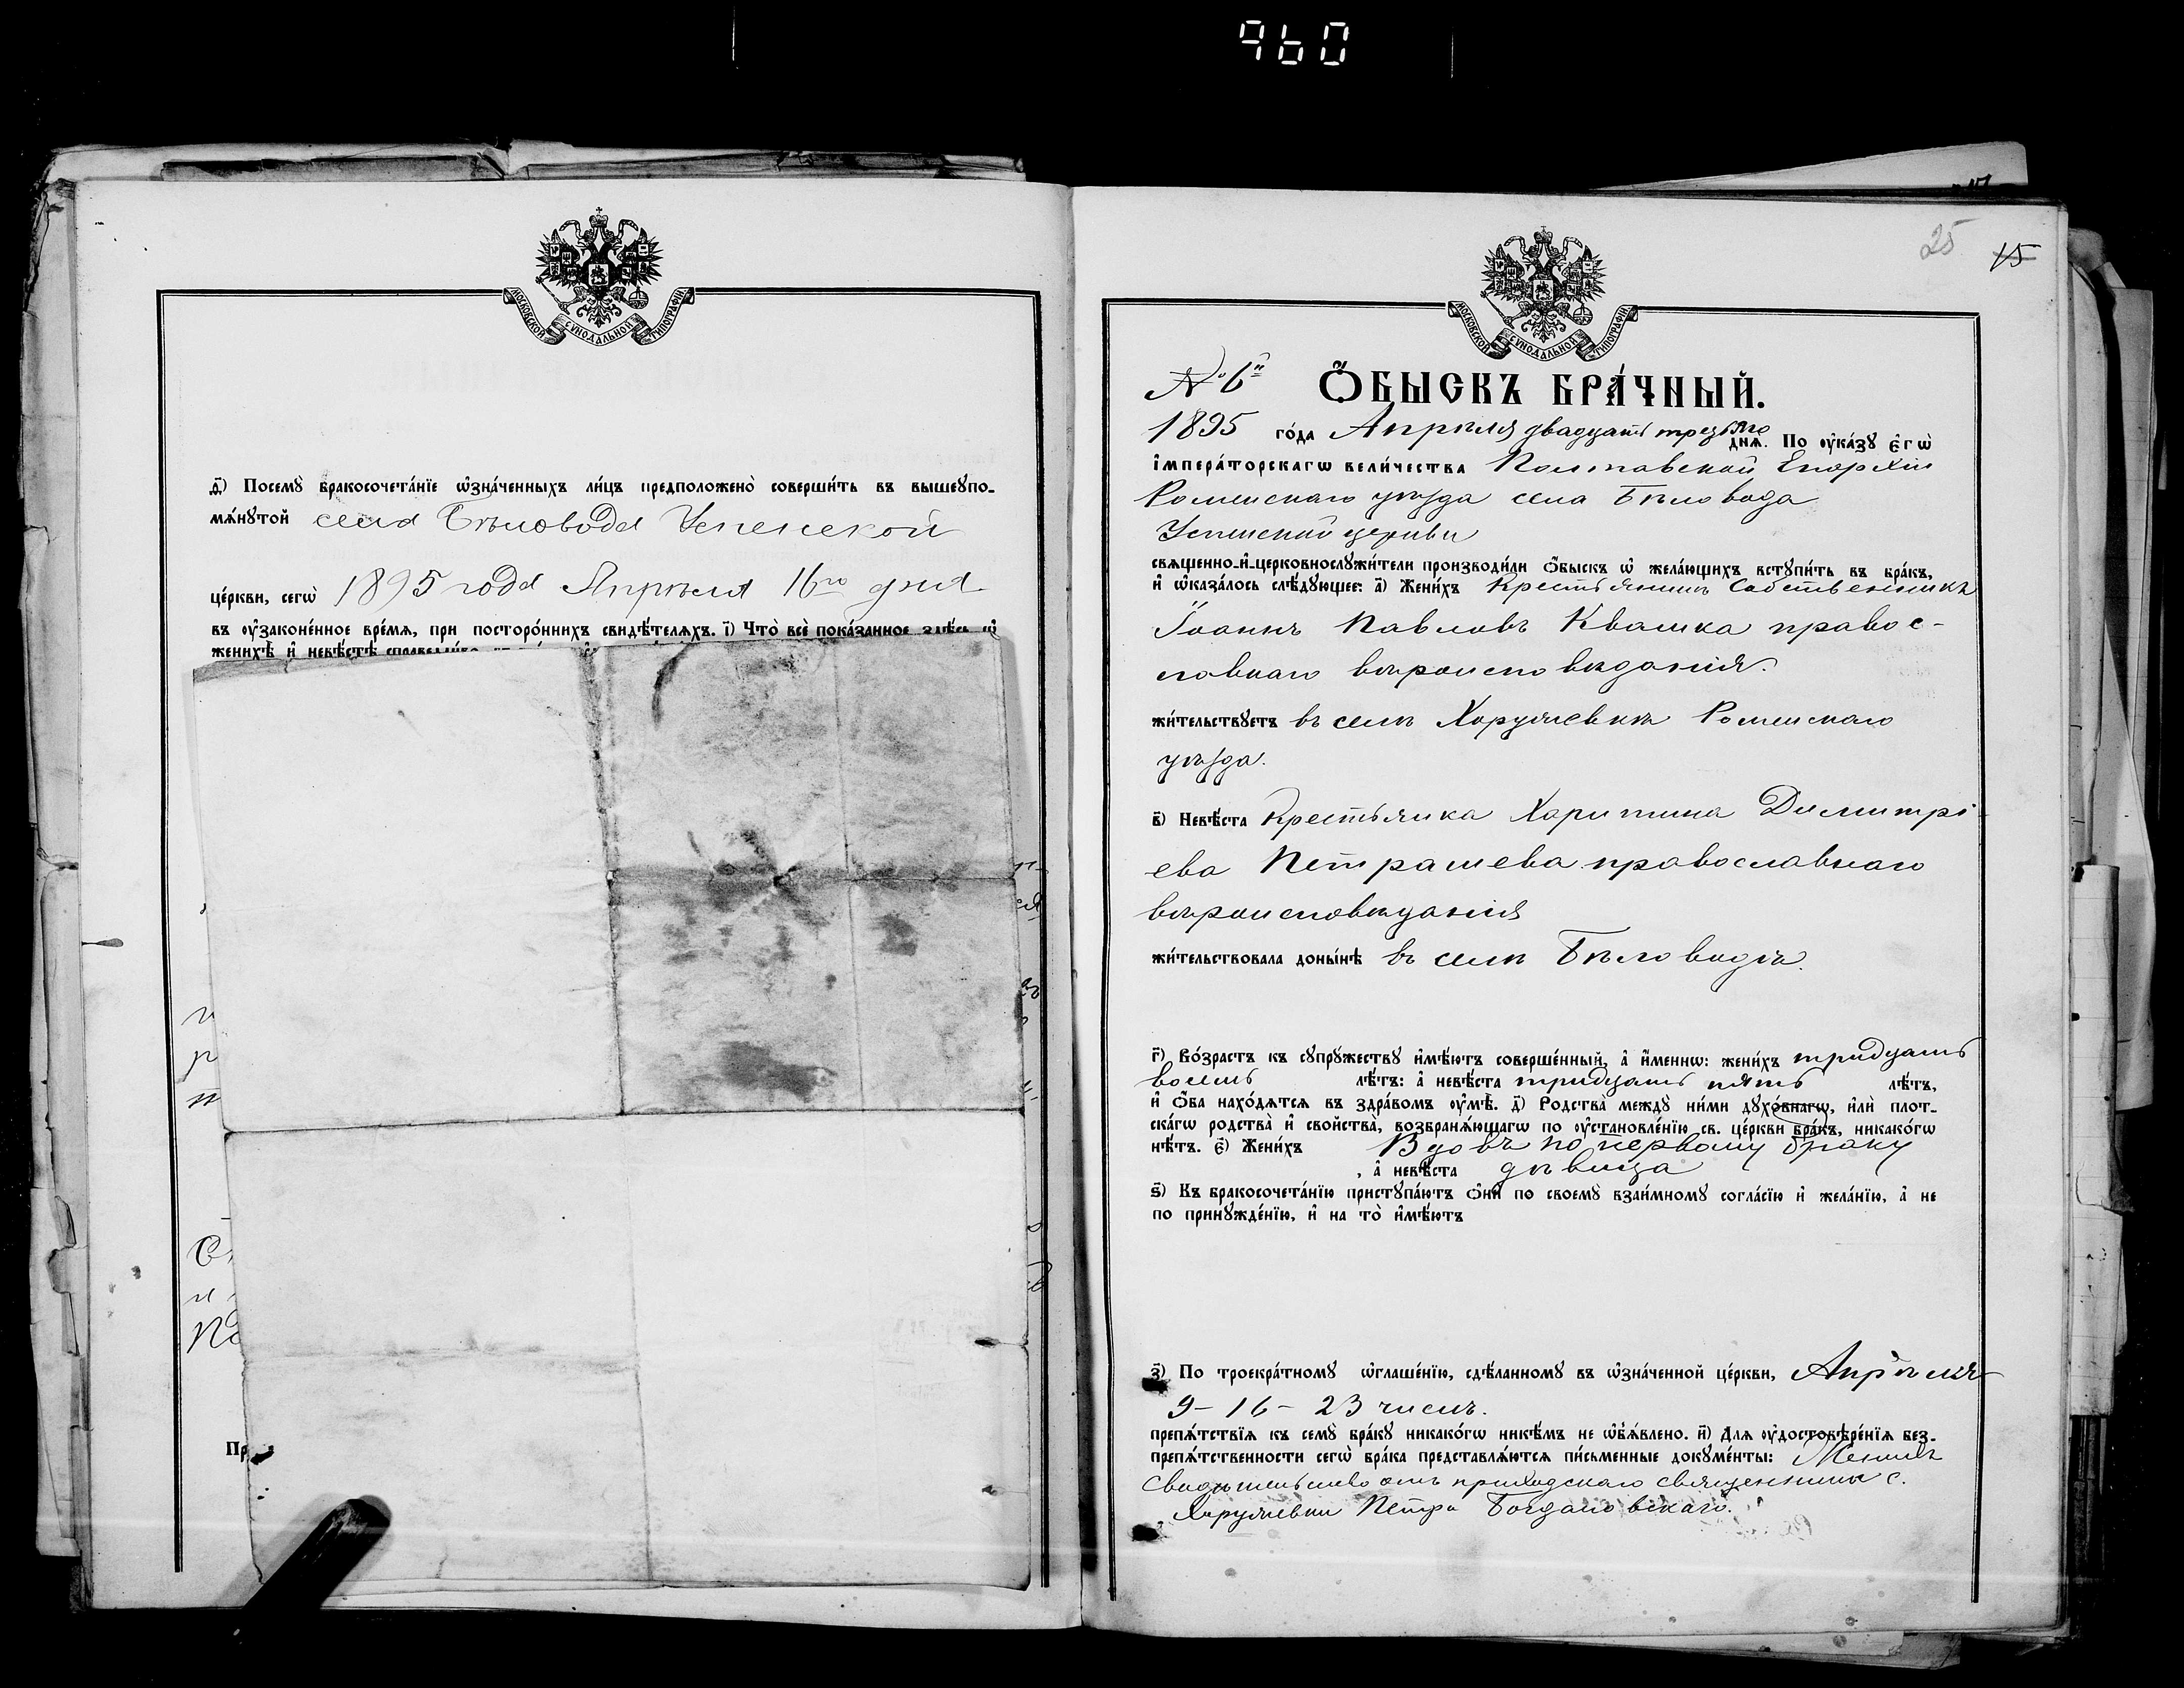 960
МОСКОВСКОЙ СѴНОДАЛЬНОЙ ТИПОГРАФІИ
д҃) Посемꙋ̀ бракосочета́нїе ѡ҆зна́ченныхъ ли́цъ предположено̀ соверши́ть въ вышеꙋпо-
мѧ́нꙋтой села Бѣловода Успенской
це́ркви, сегѡ̀ 1895 года Апрѣля 16го дня
въ ᲂу҆законе́нное вре́мѧ, при посторо́ннихъ свидѣ́телѧхъ. і҃) Что̀ всѐ пока́занное здѣсь ѡ҆
женихѣ̀ и҆ невѣ́стѣ
Пр
25 15
МОСКОВСКОЙ СѴНОДАЛЬНОЙ ТИПОГРАФІИ
№ 6й Ѻ҆БЫСКЪ БРА́ЧНЫЙ.
1895 го́да Апрѣля двадцать третьяго днѧ̀. По ᲂу҆ка́зꙋ є҆гѡ̀
і҆мпера́торскагѡ вели́чества Полтавской Епархіи
Роменскаго уѣзда села Бѣловода
Успенской церкви
свѧщенно-и҆-церковнослꙋжи́тели производи́ли ѻ҆́быскъ ѡ҆ жела́ющихъ встꙋпи́ть въ бра́къ,
и҆ ѡ҆каза́лось слѣ́дꙋющее: а҃) Жени́хъ Крестьянинъ Собственникъ
Іоаннъ Павловъ Квашка правос-
лавнаго вѣроисповѣданія.
жи́тельствꙋетъ въ селѣ Хоружевкѣ Роменскаго
уѣзда.
в҃) Невѣ́ста Крестьянка Харитина Димитрі-
ева Петрашева православнаго
вѣроисповѣданія
жи́тельствовала доны́нѣ въ селѣ Бѣловодѣ.
г҃) Во́зрастъ къ сꙋпрꙋ́жествꙋ и҆мѣ́ютъ соверше́нный, а҆ и҆́меннѡ: жени́хъ тридцать
восемь лѣ́тъ: а҆ невѣ́ста тридцать пять лѣ́тъ,
и҆ ѻ҆́ба нахо́дѧтсѧ въ здра́вомъ ᲂу҆мѣ̀. д҃) Родства̀ междꙋ̀ ни́ми дꙋхо́внагѡ, и҆лѝ плот-
ска́гѡ родства̀ и҆ сво́йства, возбранѧ́ющагѡ по ᲂу҆становле́нїю св. це́ркви бра́къ, никако́гѡ
нѣ́тъ. є҃) Жени́хъ Вдовъ по первому браку
, а҆ невѣ́ста дѣвица
ѕ҃) Къ бракосочета́нїю пристꙋпа́ютъ ѻ҆нѝ по своемꙋ̀ взаи́мномꙋ согла́сїю и҆ жела́нїю, а҆ не
по принꙋжде́нїю, и҆ на то̀ и҆мѣ́ютъ
з҃) По троекра́тномꙋ ѡ҆глаше́нїю, сдѣ́ланномꙋ въ ѡ҆зна́ченной це́ркви, Апрѣля
9 - 16 - 23 числъ.
препѧ́тствїѧ къ семꙋ̀ бра́кꙋ никако́гѡ никѣ́мъ не ѡ҆б̾ѧ́влено. и҃) Длѧ ᲂу҆достовѣре́нїѧ без-
препѧ́тственности сегѡ̀ бра́ка представлѧ́ютсѧ пи́сьменные докꙋме́нты: Женихъ
свидѣтельство отъ приходскаго священника с.
Хоружевки Петра Богдановскаго.